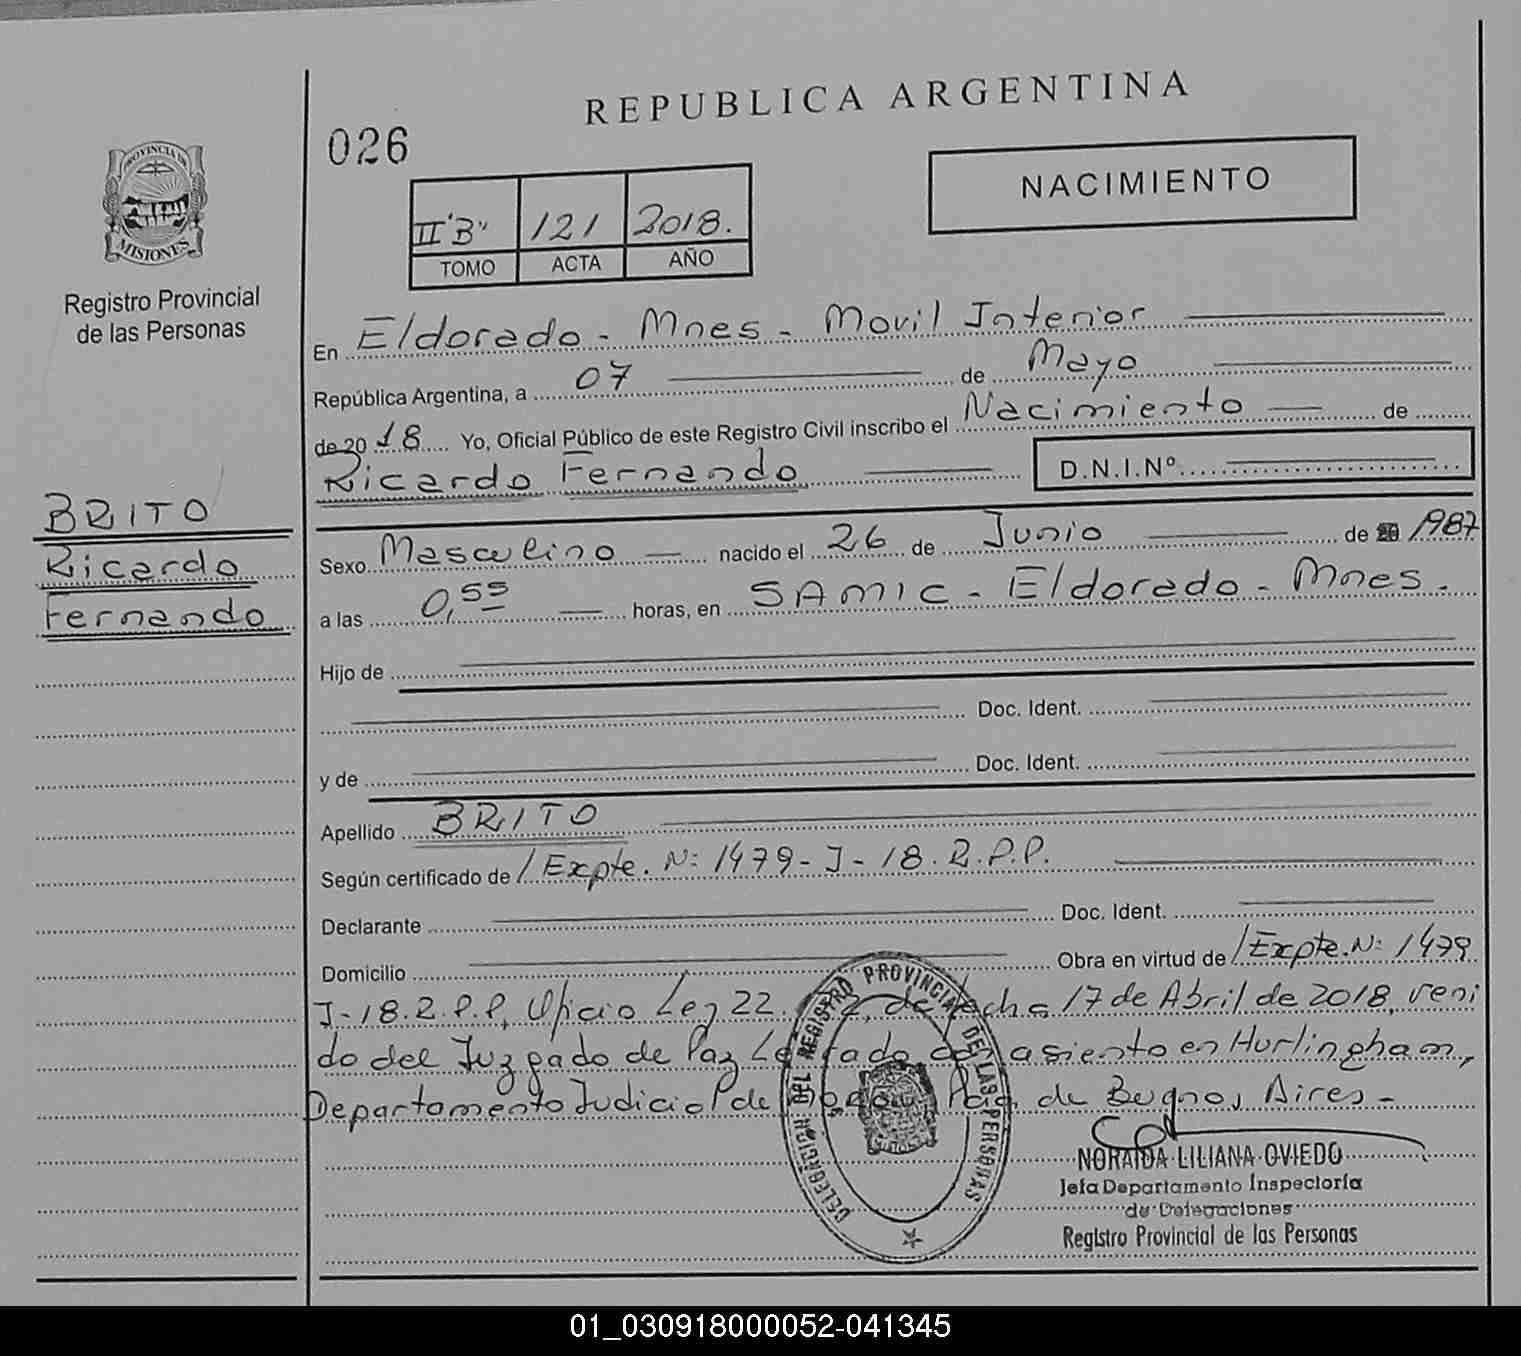 REPUBLICA ARGENTINA
026
NACIMIENTO
II "B" 121 2018.
TOMO ACTA AÑO
PROVINCIA DE
MISIONES
Registro Provincial
de las Personas
BRITO
Ricardo
Fernando
En Eldorado - Mnes - Movil Interior
República Argentina, a 07 de Mayo
de 2018 Yo, Oficial Público de este Registro Civil inscribo el Nacimiento de
Ricardo Fernando D.N.I.Nº
Sexo Masculino nacido el 26 de Junio de 1987
a las 0,55 horas, en SAMIC - Eldorado - Mnes.
Hijo de
Doc. Ident.
y de Doc. Ident.
Apellido BRITO
Según certificado de /Expte. Nº 1479-J-18.R.P.P.
Declarante Doc. Ident.
Domicilio Obra en virtud de /Expte. Nº 1479
J-18.R.P.P, Oficio Ley 22. de fecha 17 de Abril de 2018, veni
do del Juzgado de Paz asiento en Hurlingham,
Departamento Judicial de Pcia. de Buenos Aires -
DELEGACION DEL REGISTRO PROVINCIAL DE LAS PERSONAS
NORAIDA LILIANA OVIEDO
Jefa Departamento Inspectoría
de Delegaciones
Registro Provincial de las Personas
01_030918000052-041345